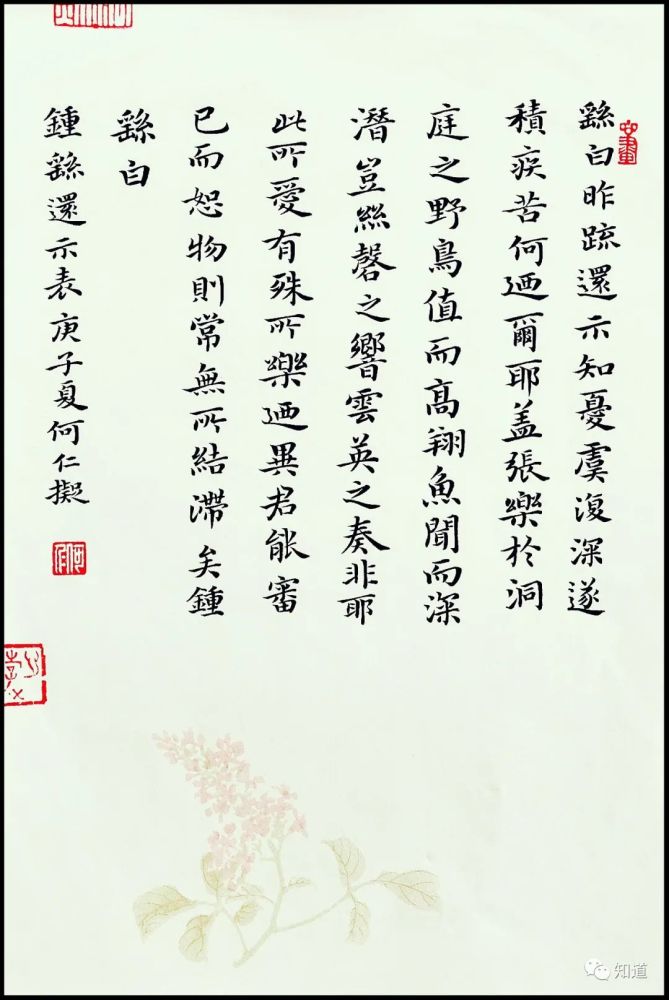 繇白昨䟽還示知憂虞復深遂
積疾苦何迺爾耶盖張樂於洞
庭之野鳥值而高翔魚聞而深
潛豈絲磬之響雲英之奏非耶
此所愛有殊所樂迺異君能審
已而恕物則常無所結滯矣鍾
繇白
鍾繇還示表庚子夏何仁擬
知道